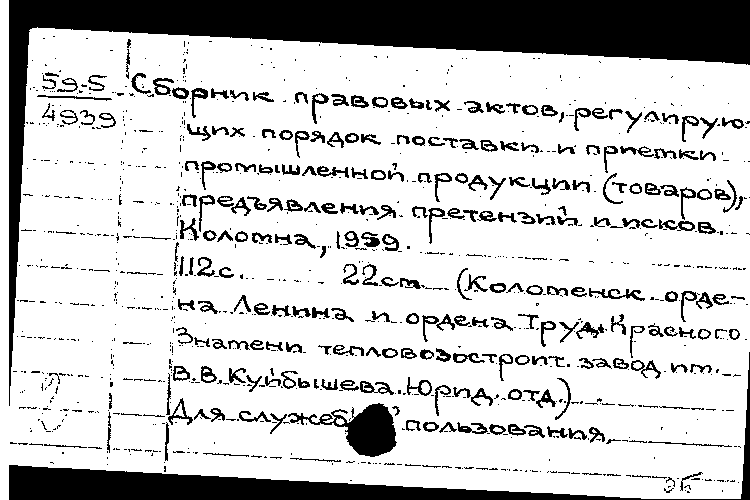 59-5 Сборник правовых актов, регулирую-
4939 щих порядок поставки и приемки
промышленной продукции (товаров),
предъявления претензий и исков.
Коломна, 1959.
112с. 22см (Коломенск. орде-
на Ленина и ордена Труд. Красного
Знамени тепловозостроит. завод им.
В.В. Куйбышева. Юрид. отд.)
Для служеб пользования,